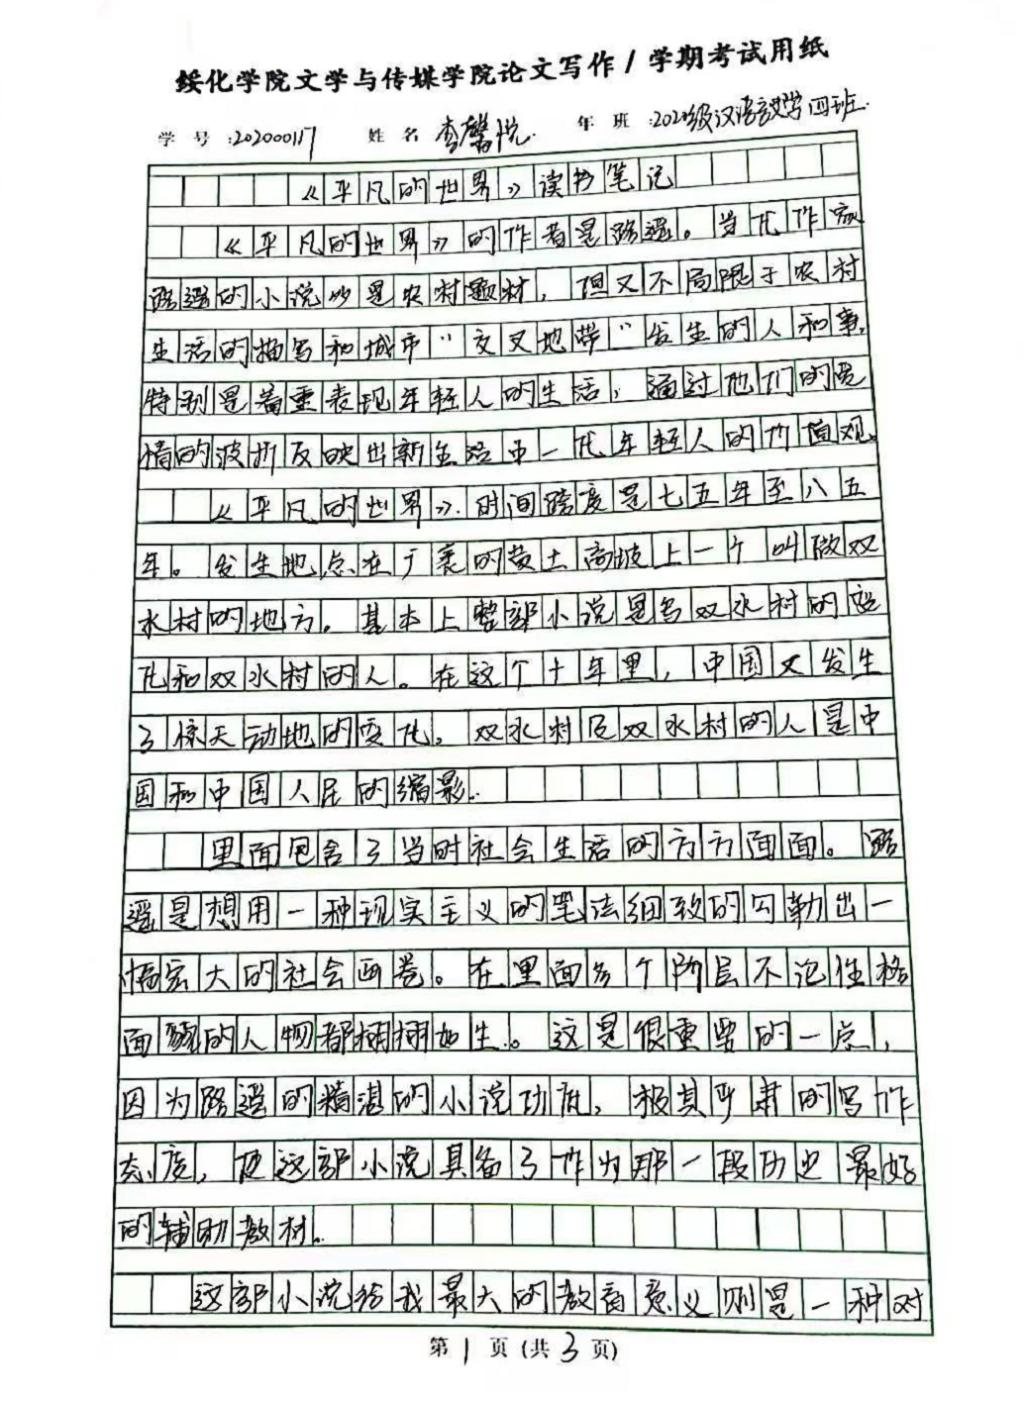 绥化学院文学与传媒学院论文写作/学期考试用纸
学号:202000117 姓名 李馨悦. 年班:2020级汉语言文学四班.
《平凡的世界》读书笔记
《平凡的世界》的作者是路遥。当代作家
路遥的小说以是农村题材，但又不局限于农村
生活的描写和城市“交叉地带”发生的人和事,
特别是着重表现年轻人的生活，通过他们的爱
情的波折反映出新生活中一代年轻人的价值观。
《平凡的世界》.时间跨度是七五年至八五
年。发生地点在广袤的黄土高坡上一个叫做双
水村的地方。基本上整部小说是写双水村的变
化和双水村的人。在这个十年里，中国又发生
了惊天动地的变化，双水村及双水村的人是中
国和中国人民的缩影.
里面包含了当时社会生活的方方面面。路
遥是想用一种现实主义的笔法细致的勾勒出一
幅宏大的社会画卷。在里面多个阶层不论性格
面貌的人物都栩栩如生。这是很重要的一点，
因为路遥的精湛的小说功底，极其严肃的写作
态度，使这部小说具备了作为那一段历史最好
的辅助教材.
这部小说给我最大的教育意义则是一种对
第1页(共3页)